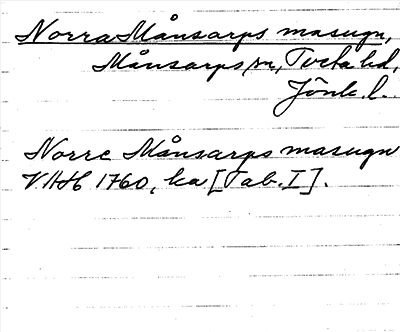 Norra Månsarps masugn,
Månsarps sn, Tveta hd,
Jönk. l.
Norre Månsarps masugn
VHH 1760, ka [Tab. I].